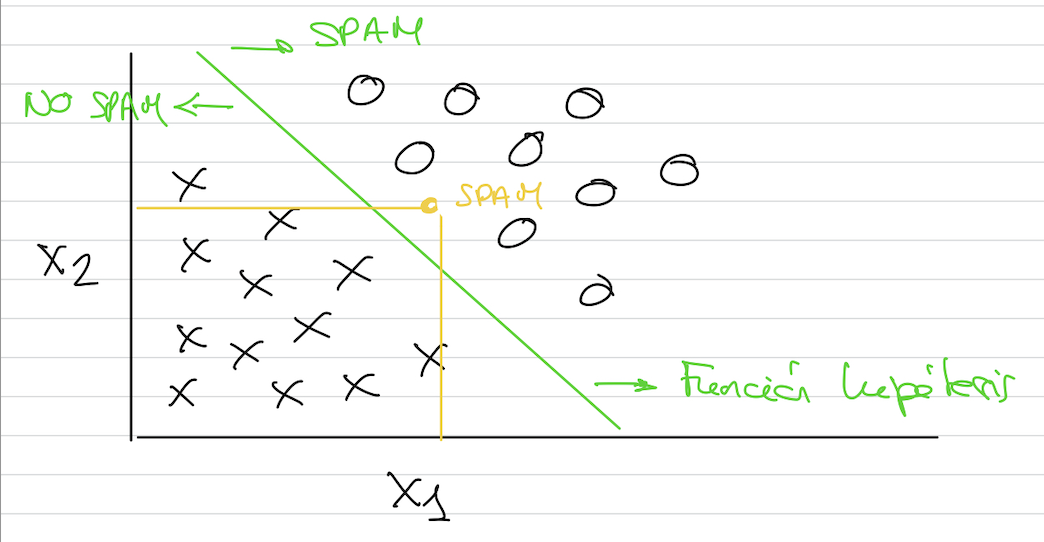 SPAM
NO SPAM
SPAM
X2
Función hipótesis
X1